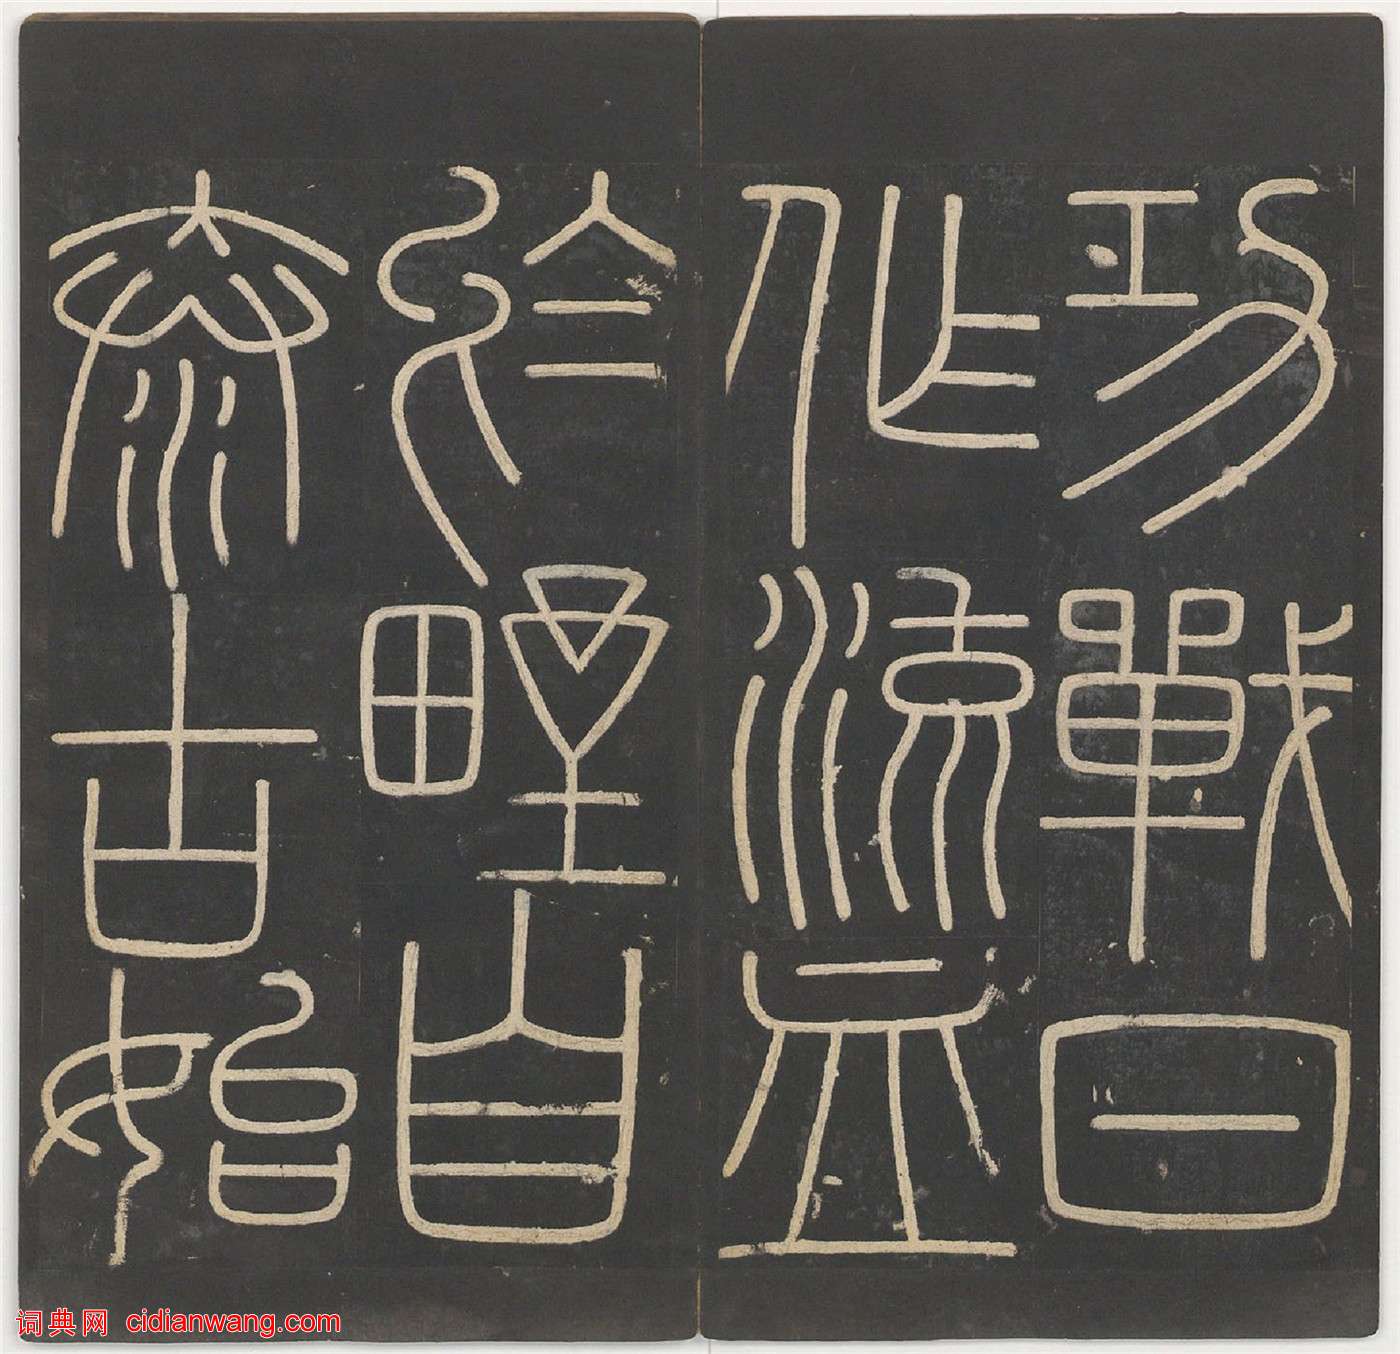 功戰日
作流血
於野自
泰古始
词典网 cidianwang.com